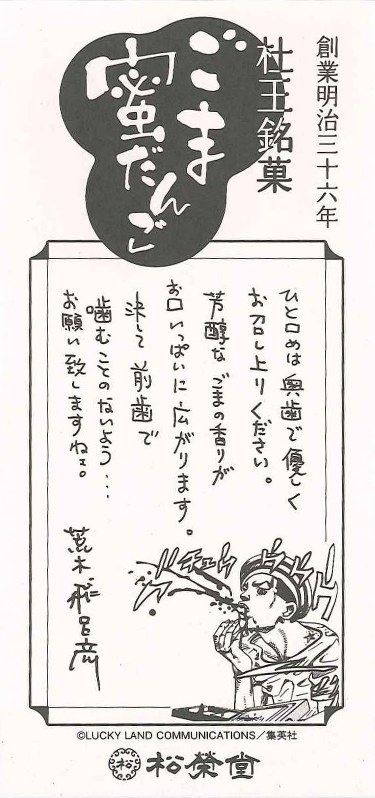 創業明治三十六年
杜王銘菓
ごま
蜜だんご
ひと口めは奥歯で優しく
お召し上りください。
芳醇なごまの香りが
お口いっぱいに広がります。
決して前歯で
噛むことのないよう…
お願い致しますねェ。
荒木飛呂彦
ブチュウ
©LUCKY LAND COMMUNICATIONS／集英社
松榮堂